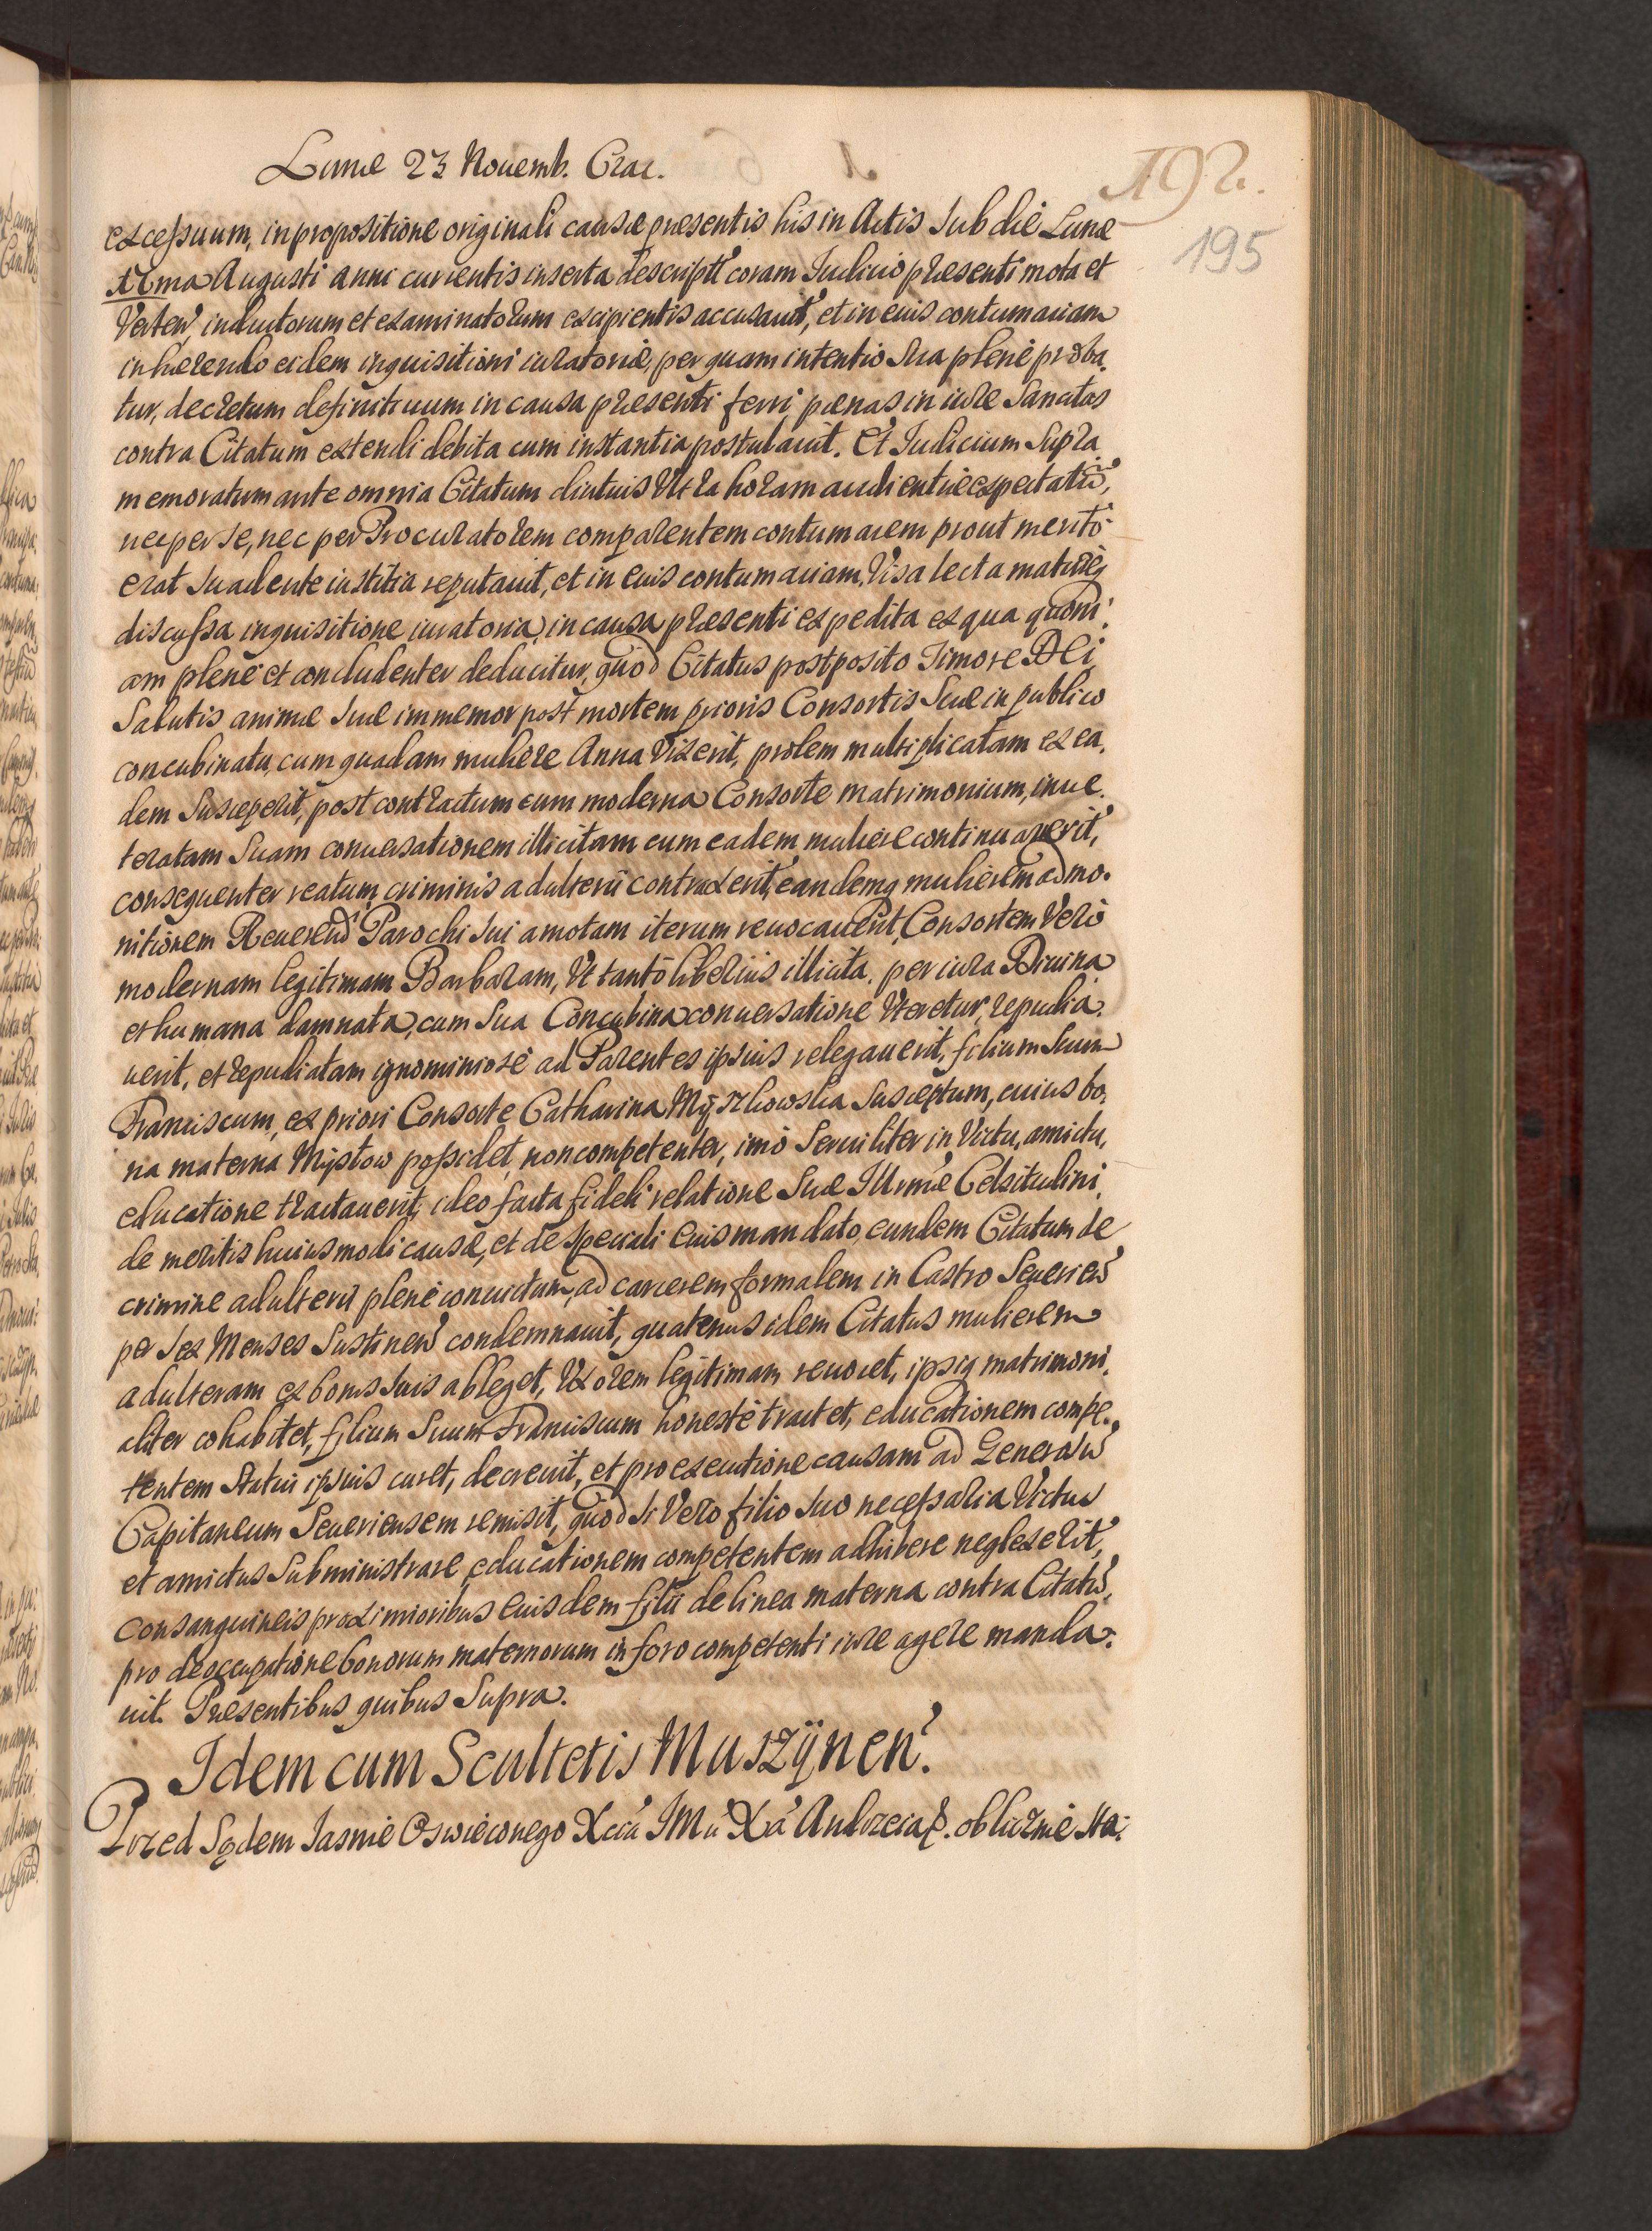 Lunæ 23 Nouemb. Crac.
192.
195
excessuum, in propositione originali causæ præsentis his in Actis sub die Lunæ
Xma Augusti anni currentis inserta descript' coram Iudicio præsenti mota et
Verten' inductorum et examinatorum excipientis accusauit, et in eius contumaciam
inhærendo eidem inquisitioni iuratoriæ, per quam intentio sua plenè proba-
tur, decretum definitiuum in causa præsenti ferri, pænas in iure sancitas
contra Citatum extendi debita cum instantia postulauit. Et Iudicium supra
memoratum ante omnia Citatum diutuis Vltra horam audientiæ expectatũ,
nec per se, nec per Procuratorem comparentem contumacem prout meritò
erat suadente iustitia reputauit, et in eius contumaciam, Visa lecta matureq
discussa inquisitione iuratoria, in causa præsenti expedita ex qua quoni:
am plenè et concludenter deducitur, quod Citatus postposito Timore DEi,
Salutis animæ suæ immemor post mortem prioris Consortis suæ in publico
concubinatu, cum quadam muliere Anna Vixerit, prolem multiplicatam ex ea,
dem susceperit, post contractum cum moderna Consorte matrimonium, inue.
teratam suam conuersationem illicitam cum eadem muliere continuauerit,
consequenter reatum criminis adulterii contraxerit, eandemq mulierem ad mo.
nitionem Reuerend' Parochi sui amotam iterum reuocauerit, Consortem Verò
modernam legitimam Barbaram, Vt tantò liberiùs illicita, per iura Diuina
et humana damnata, cum sua Concubina conuersatione Vteretur, repudia.
uerit, et repudiatam ignominiosè ad Parentes ipsius relegauerit, filium suum
Franciscum, ex priori Consorte Catharina Myszkowska susceptum, cuius bo,
na materna Mysłow possidet, non competenter, imò seruiliter in Victu, amictu,
educatione tractauerit, ideo facta fideli relatione suæ Illrmæ Celsitudini,
de meritis huiusmodi causæ, et de speciali eius mandato, eundem Citatum de
crimine adulterii plenè conuictum, ad carcerem formalem in Castro Seuerien'
per sex Menses sustinen' condemnauit, quatenus idem Citatus mulierem
adulteram ex bonis suis ableget, Vxorem legitimam reuocet, ipsiq matrimoni,
aliter cohabitet, filium suum Franciscum honestè tractet, educationem compe.
tentem statui ipsius curet, decreuit, et pro executione causam ad Generosũ
Capitaneum Seueriensem remisit, quod si Verò filio suo necessaria Victus
et amictus subministrare, educationem competentem adhibere neglexerit,
consanguineis proximioribus eiusdem filii de linea materna contra Citatũ,
pro deoccupatione bonorum maternorum in foro competenti iure agere manda:
uit. Præsentibus quibus supra.
Idem cum Scultetis Muszÿnen'.
Przed Sądem Iasnie Oswieconego Xcia IMci Xa Andrzeia &. oblicznie sta: